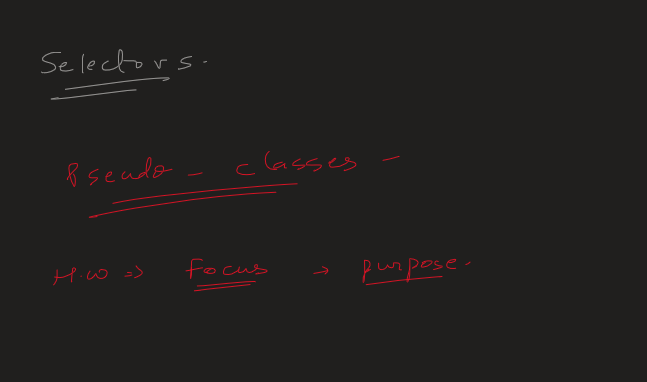 Selectors.
Pseudo - classes -
H.w => focus → purpose.